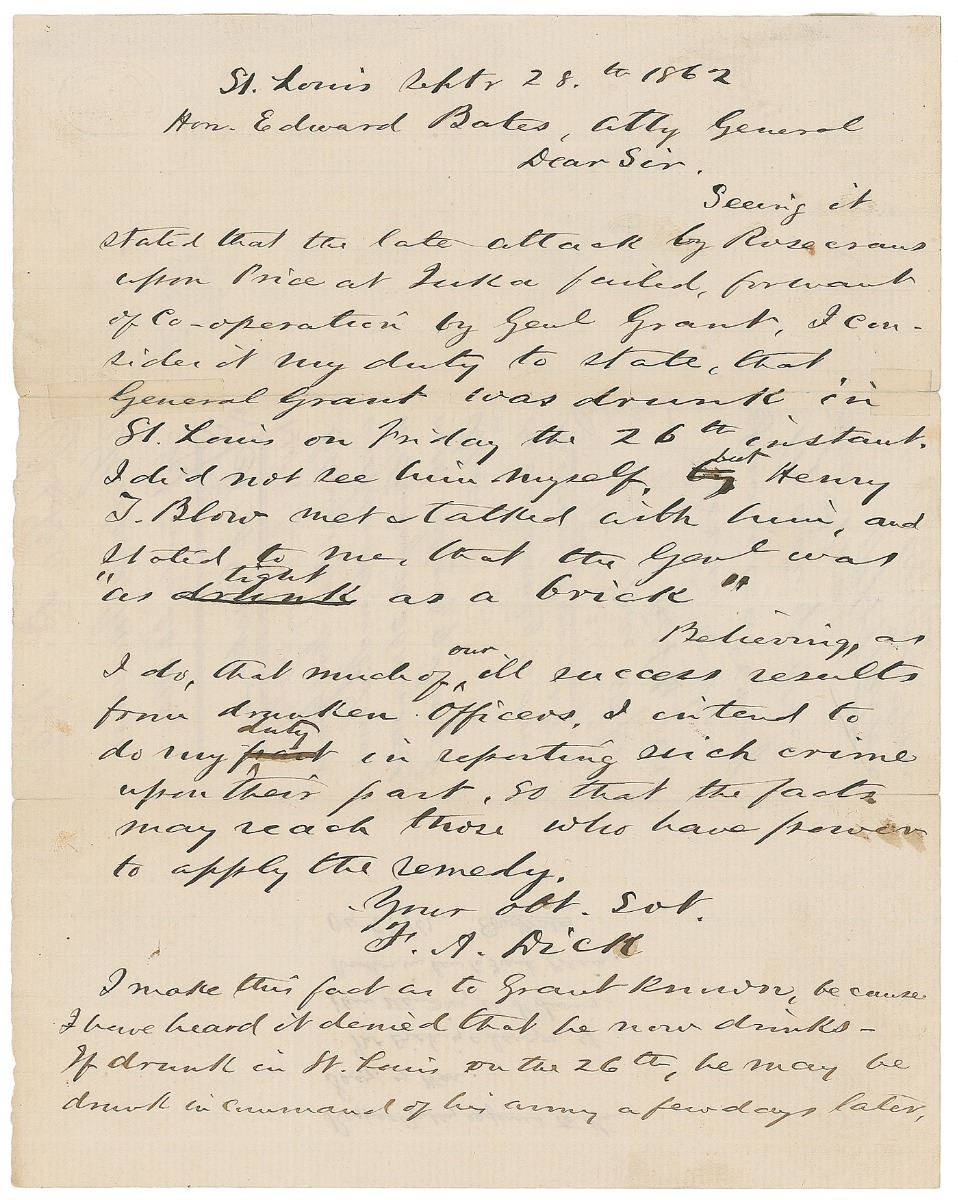 St. Louis Septr 28.th 1862
Hon. Edward Bates, Atty General
Dear Sir.
Seeing it
stated that the late attack by Rosecrans
upon Price at Iuka failed, for want
of Co-operation by Genl Grant, I con-
sider it my duty to state, that
General Grant was drunk in
St. Louis on Friday the 26th instant.
I did not see him myself, but Henry
T. Blow met & talked with him, and
stated to me, that the Genl was
"as drunk tight as a brick"
Believing, as
I do, that much of our ill success results
from drunken officers, I intend to
do my part duty in reporting such crime
upon their part, so that the facts
may reach those who have power
to apply the remedy.
Your obt. Svt.
F. A. Dick
I make this fact as to Grant known, because
I have heard it denied that he now drinks-
If drunk in St. Louis on the 26th, he may be
drunk in command of his army a few days later,